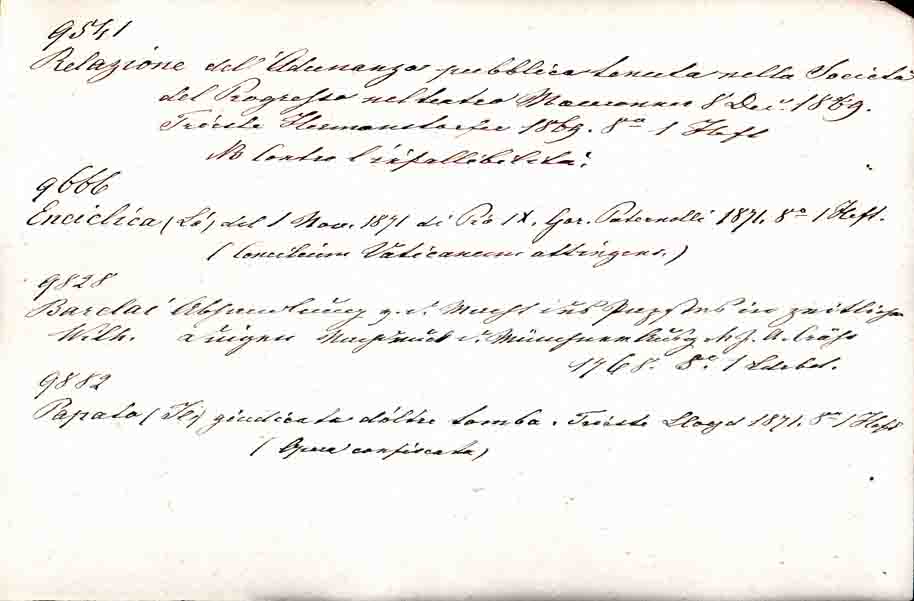 9541
Relazione dell'Adunanza pubblica tenuta nella Società
del Progresso nel teatro Mauroner 8 Dec. 1869.
Trieste Hermanstorfer 1869. 8vo 1 Heft
NB Contro l'infallibilità.
9666
Enciclica (La) del 1 Nov. 1871 di Pio IX. Gor. Paternolli 1871. 8o 1 Heft.
(Concilium Vaticanum attingens.)
9828
Barclai Abhandlung v. d. Macht des Papstes in zeitlichen
Wilh. Dingen
1768. 8o. 1 Ldrbd.
9882
Papato (Il) giudicato d'oltre tomba. Trieste Lloyd 1871. 8vo 1 Heft
(Opera confiscata)